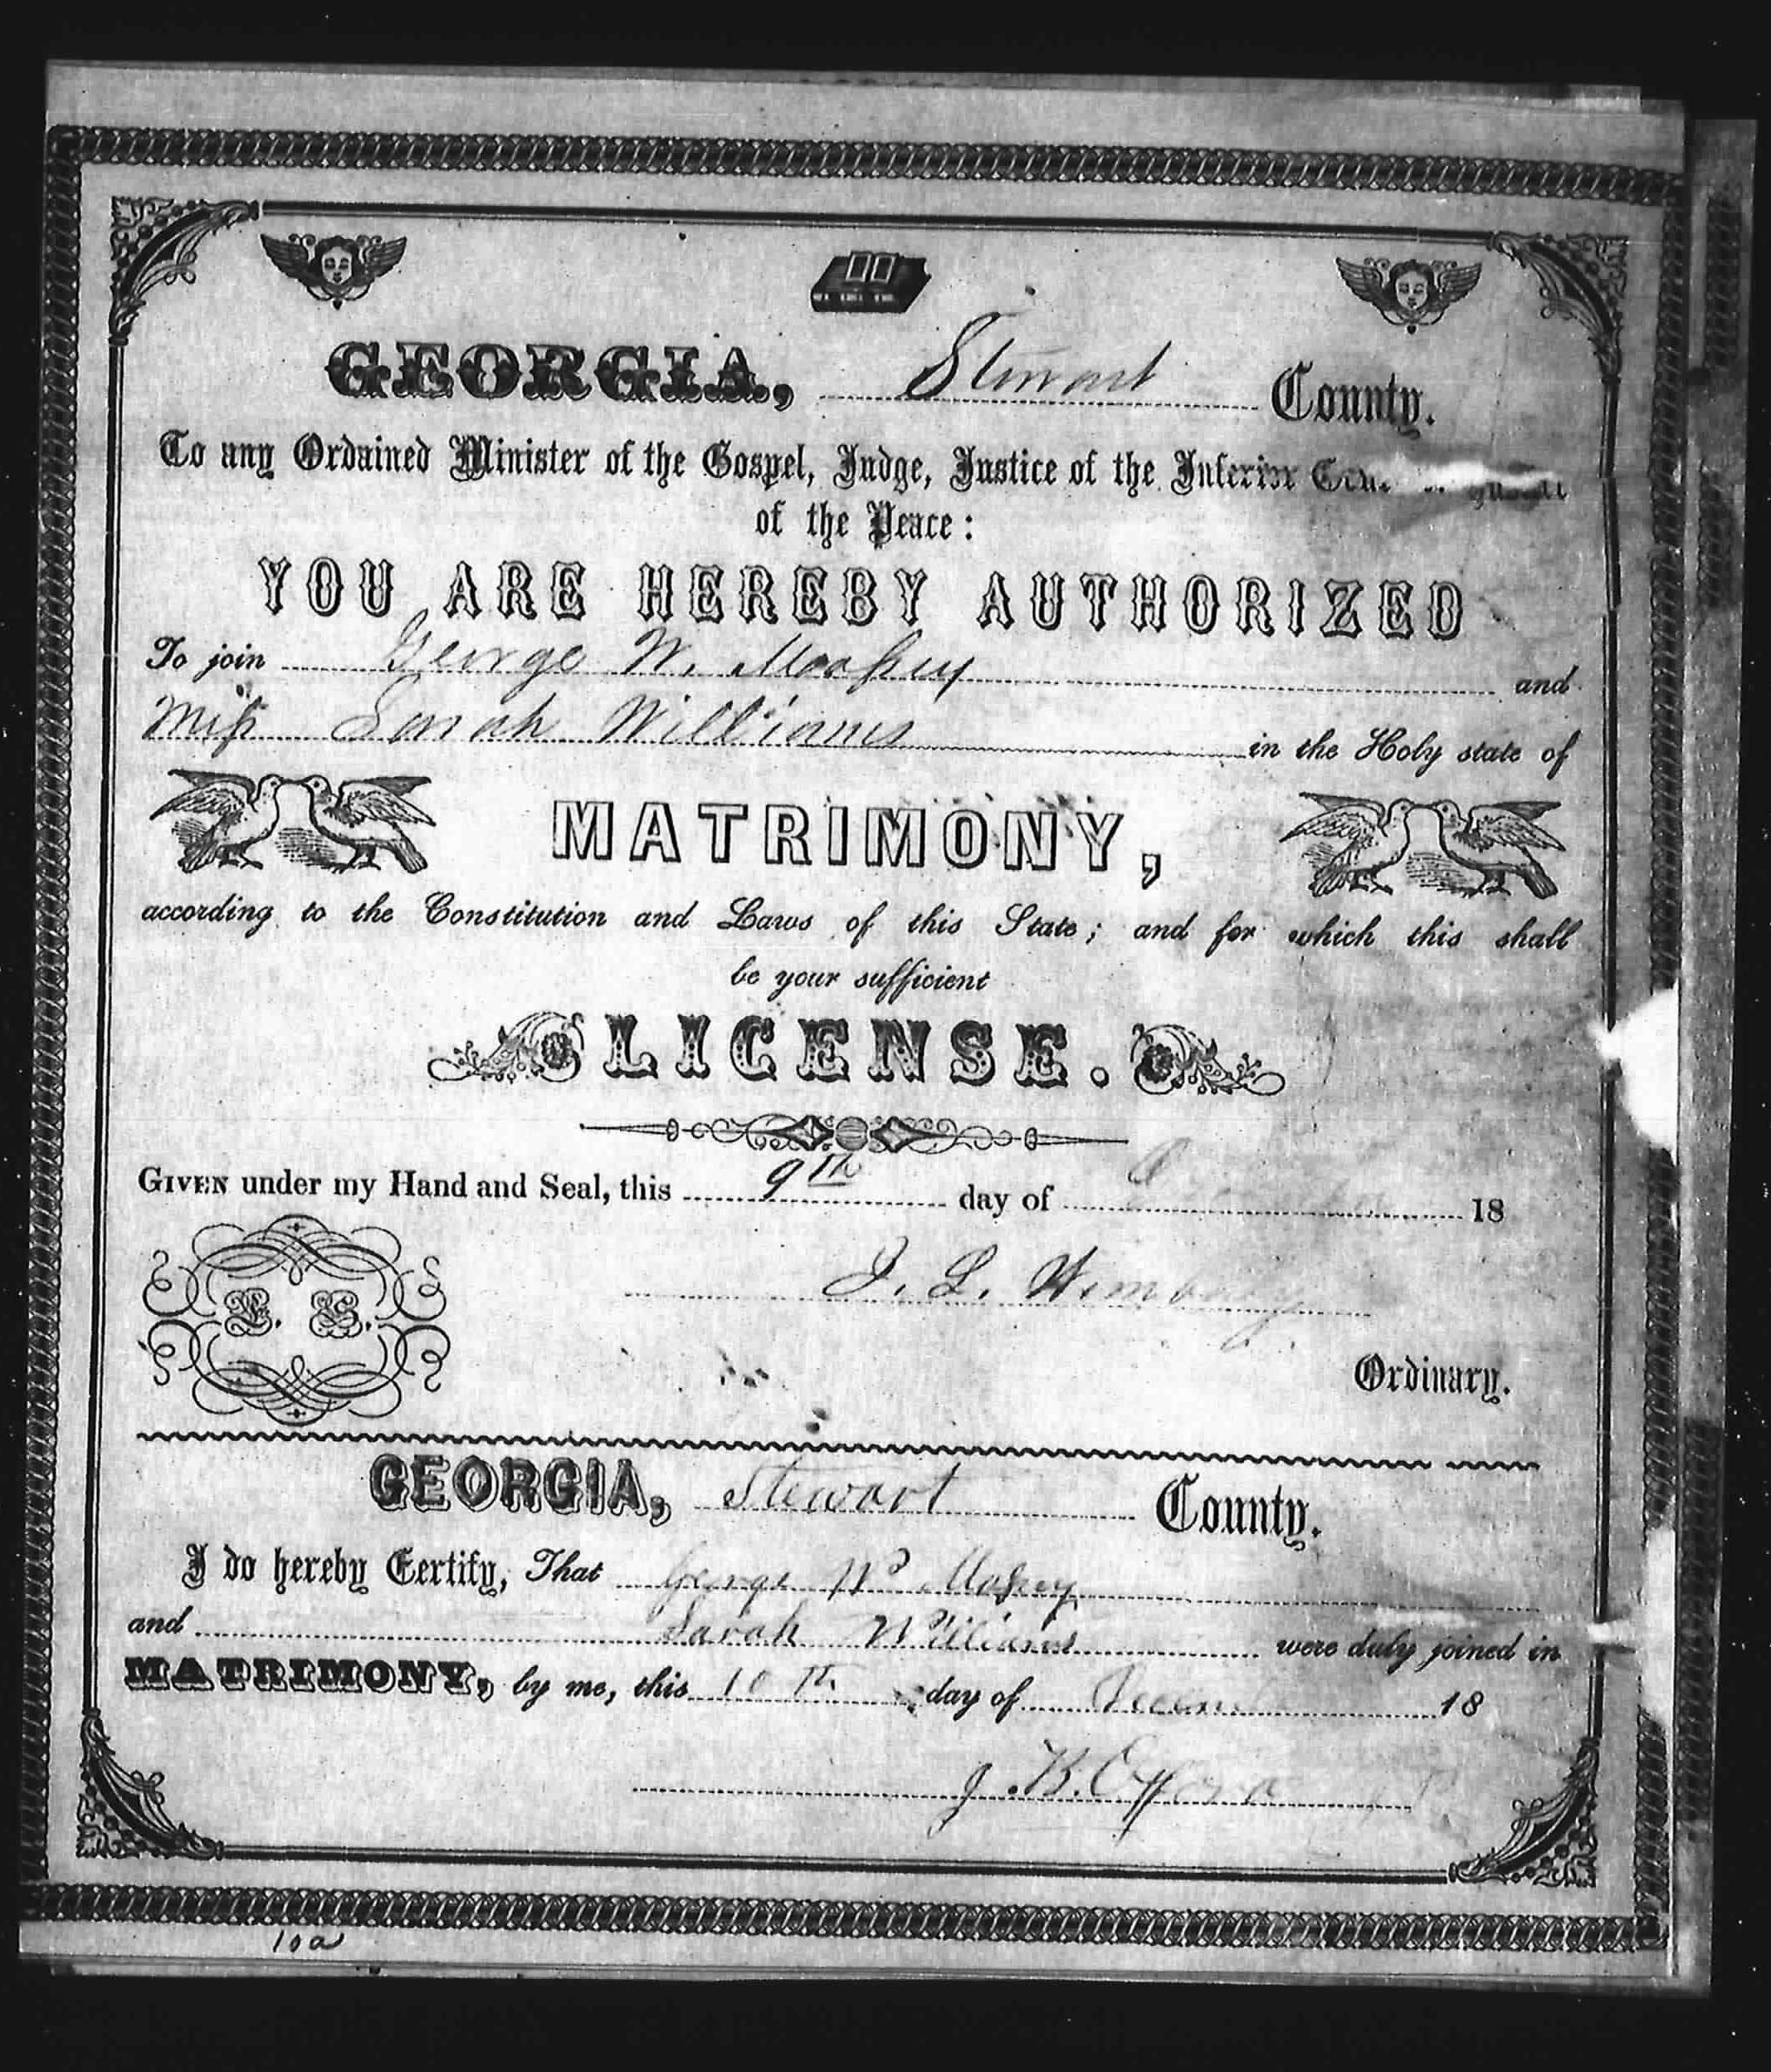 GEORGIA, Stewart County.
To any Ordained Minister of the Gospel, Judge, Justice of the Inferior
of the Peace:
YOU ARE HEREBY AUTHORIZED
To join George W. Massey and
Miss Sarah Williams in the Holy state of
MATRIMONY,
according to the Constitution and Laws of this State; and for which this shall
be your sufficient
LICENSE.
GIVEN under my Hand and Seal, this 9th day of 18
J. L. Wimberly
L. S.
Ordinary.
GEORGIA, Stewart County.
I do hereby Certify, That George W Massey
and Sarah Williams were duly joined in
MATRIMONY, by me, this 10th day of 18
J. K.
10a